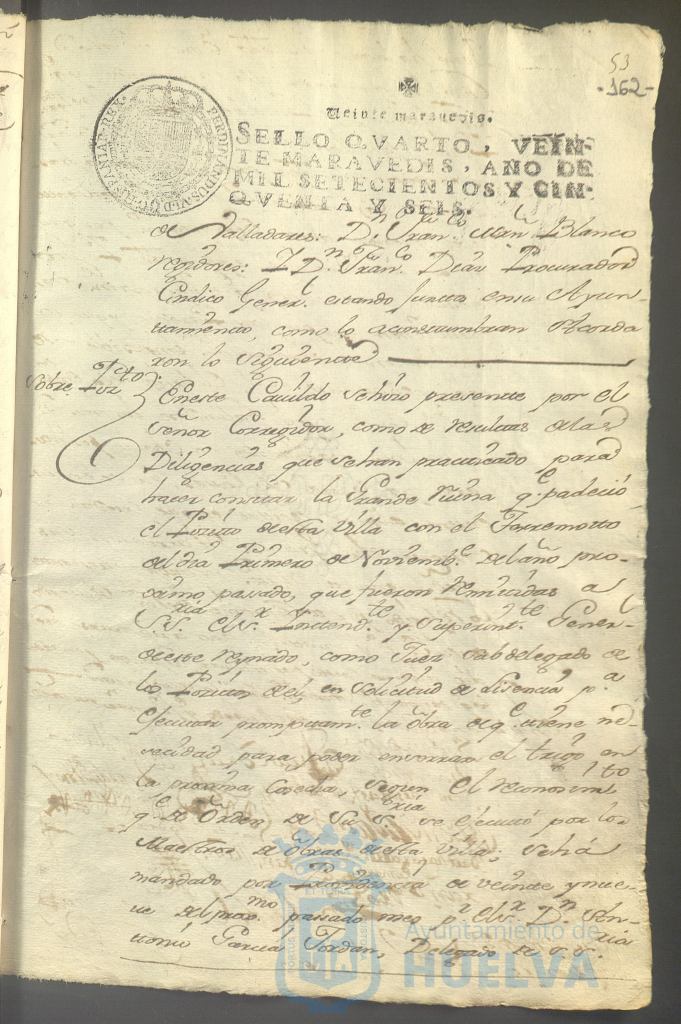 53
162
Veinte maravedis.
SELLO QVARTO, VEIN-
TE MARAVEDIS, AÑO DE
MIL SETECIENTOS Y CIN-
QVENTA Y SEIS.
de Valladares: Dn Franco Blanco
regidores: Y Dn Franco Diaz Procurador
Cindico Gener. estando juntos en su Ayun-
tamiento, como lo acostumbran Acorda
ron lo siguiente
Sobre
En este Cavildo se hizo presente por el
Señor Corregidor, como de resultas de las
Diligencias que se han practicado para
hacer constar la Grande ruina qe padecio
el Posito de esta Villa con el Terremotto
del dia Primero de Noviembe del año pro-
ximo pasado, que fueron remitidas a
S.Sria el Sr Intendte y Superintte Gener-
de este reynado, como Juez subdelegado de
los Positos del, en solicitud de lisencia pa
Ejecutar promptamte la obra de qe tiene ne-
secidad para poder enserrar el trigo en
la proxima Cosecha, segun el reconosimto
qe de Orden de Su Sria se ejecutó por los
Maestros de Obras de esta Villa, se ha
mandado por Providencia de veinte y nue-
ve del proxmo pasado mes pr el Sr Dn An-
tonio Garcia Jordan, Delegado de S.Sria
Ayuntamiento de
HUELVA